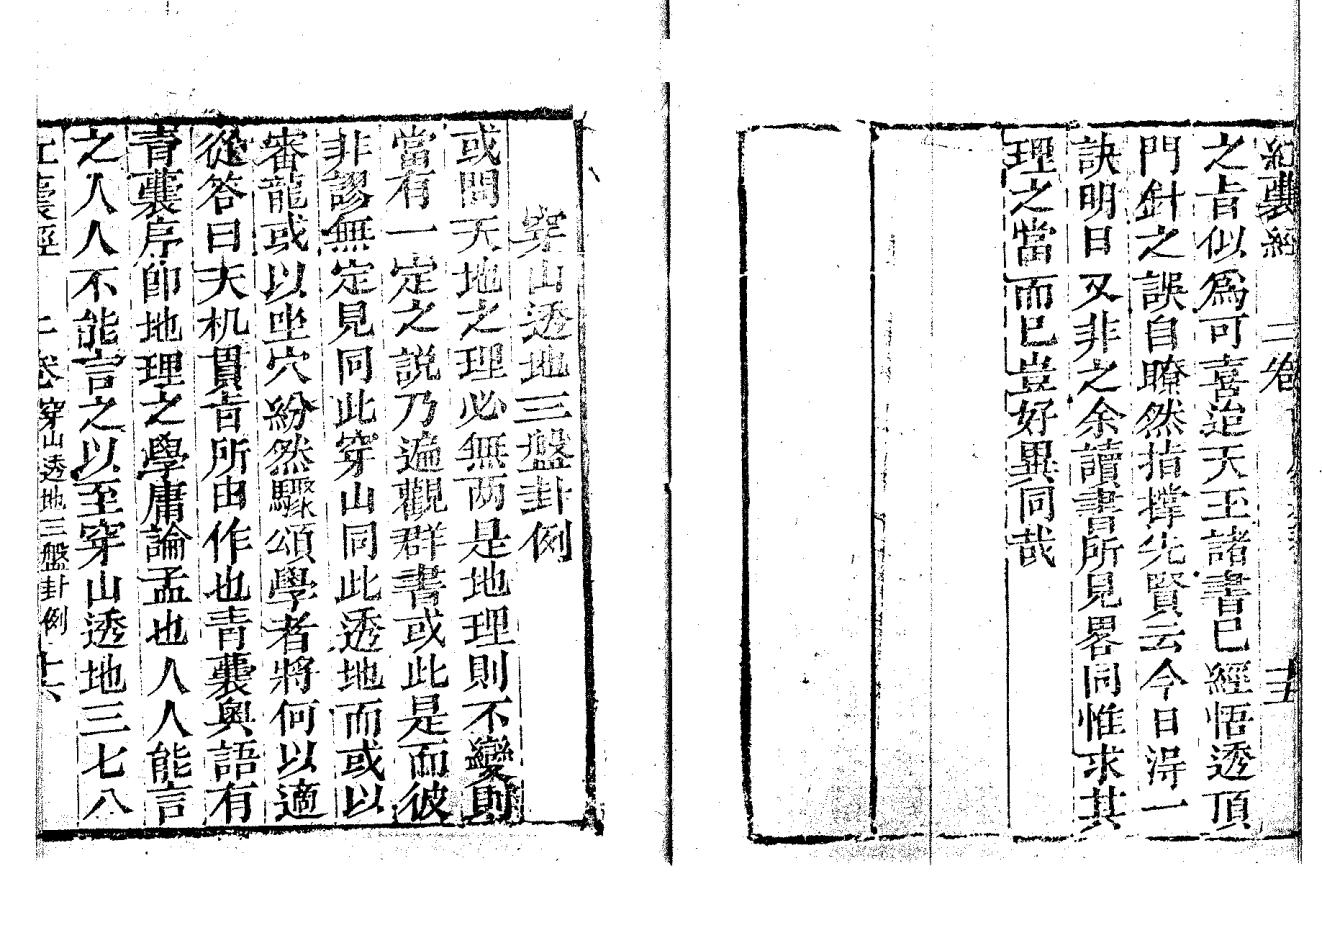 紅囊經 二卷 十五
之㫖似爲可喜迨天玉諸書已經悟透頂
門針之誤自瞭然指撑先賢云今日淂一
訣明日又非之余讀書所見畧同惟求其
理之當而已豈好異同哉
穿山透地三盤卦例
或問天地之理必無两是地理則不變則
當有一定之説乃遍觀群書或此是而彼
非謬無定見同此穿山同此透地而或以
審龍或以坐穴紛然驟頌學者將何以適
從答曰天机貫㫖所由作也青囊奥語有
青囊序卽地理之學庸論孟也人人能言
之人人不能言之以至穿山透地三七八
紅囊經 二卷 穿山透地三盤卦例 十六